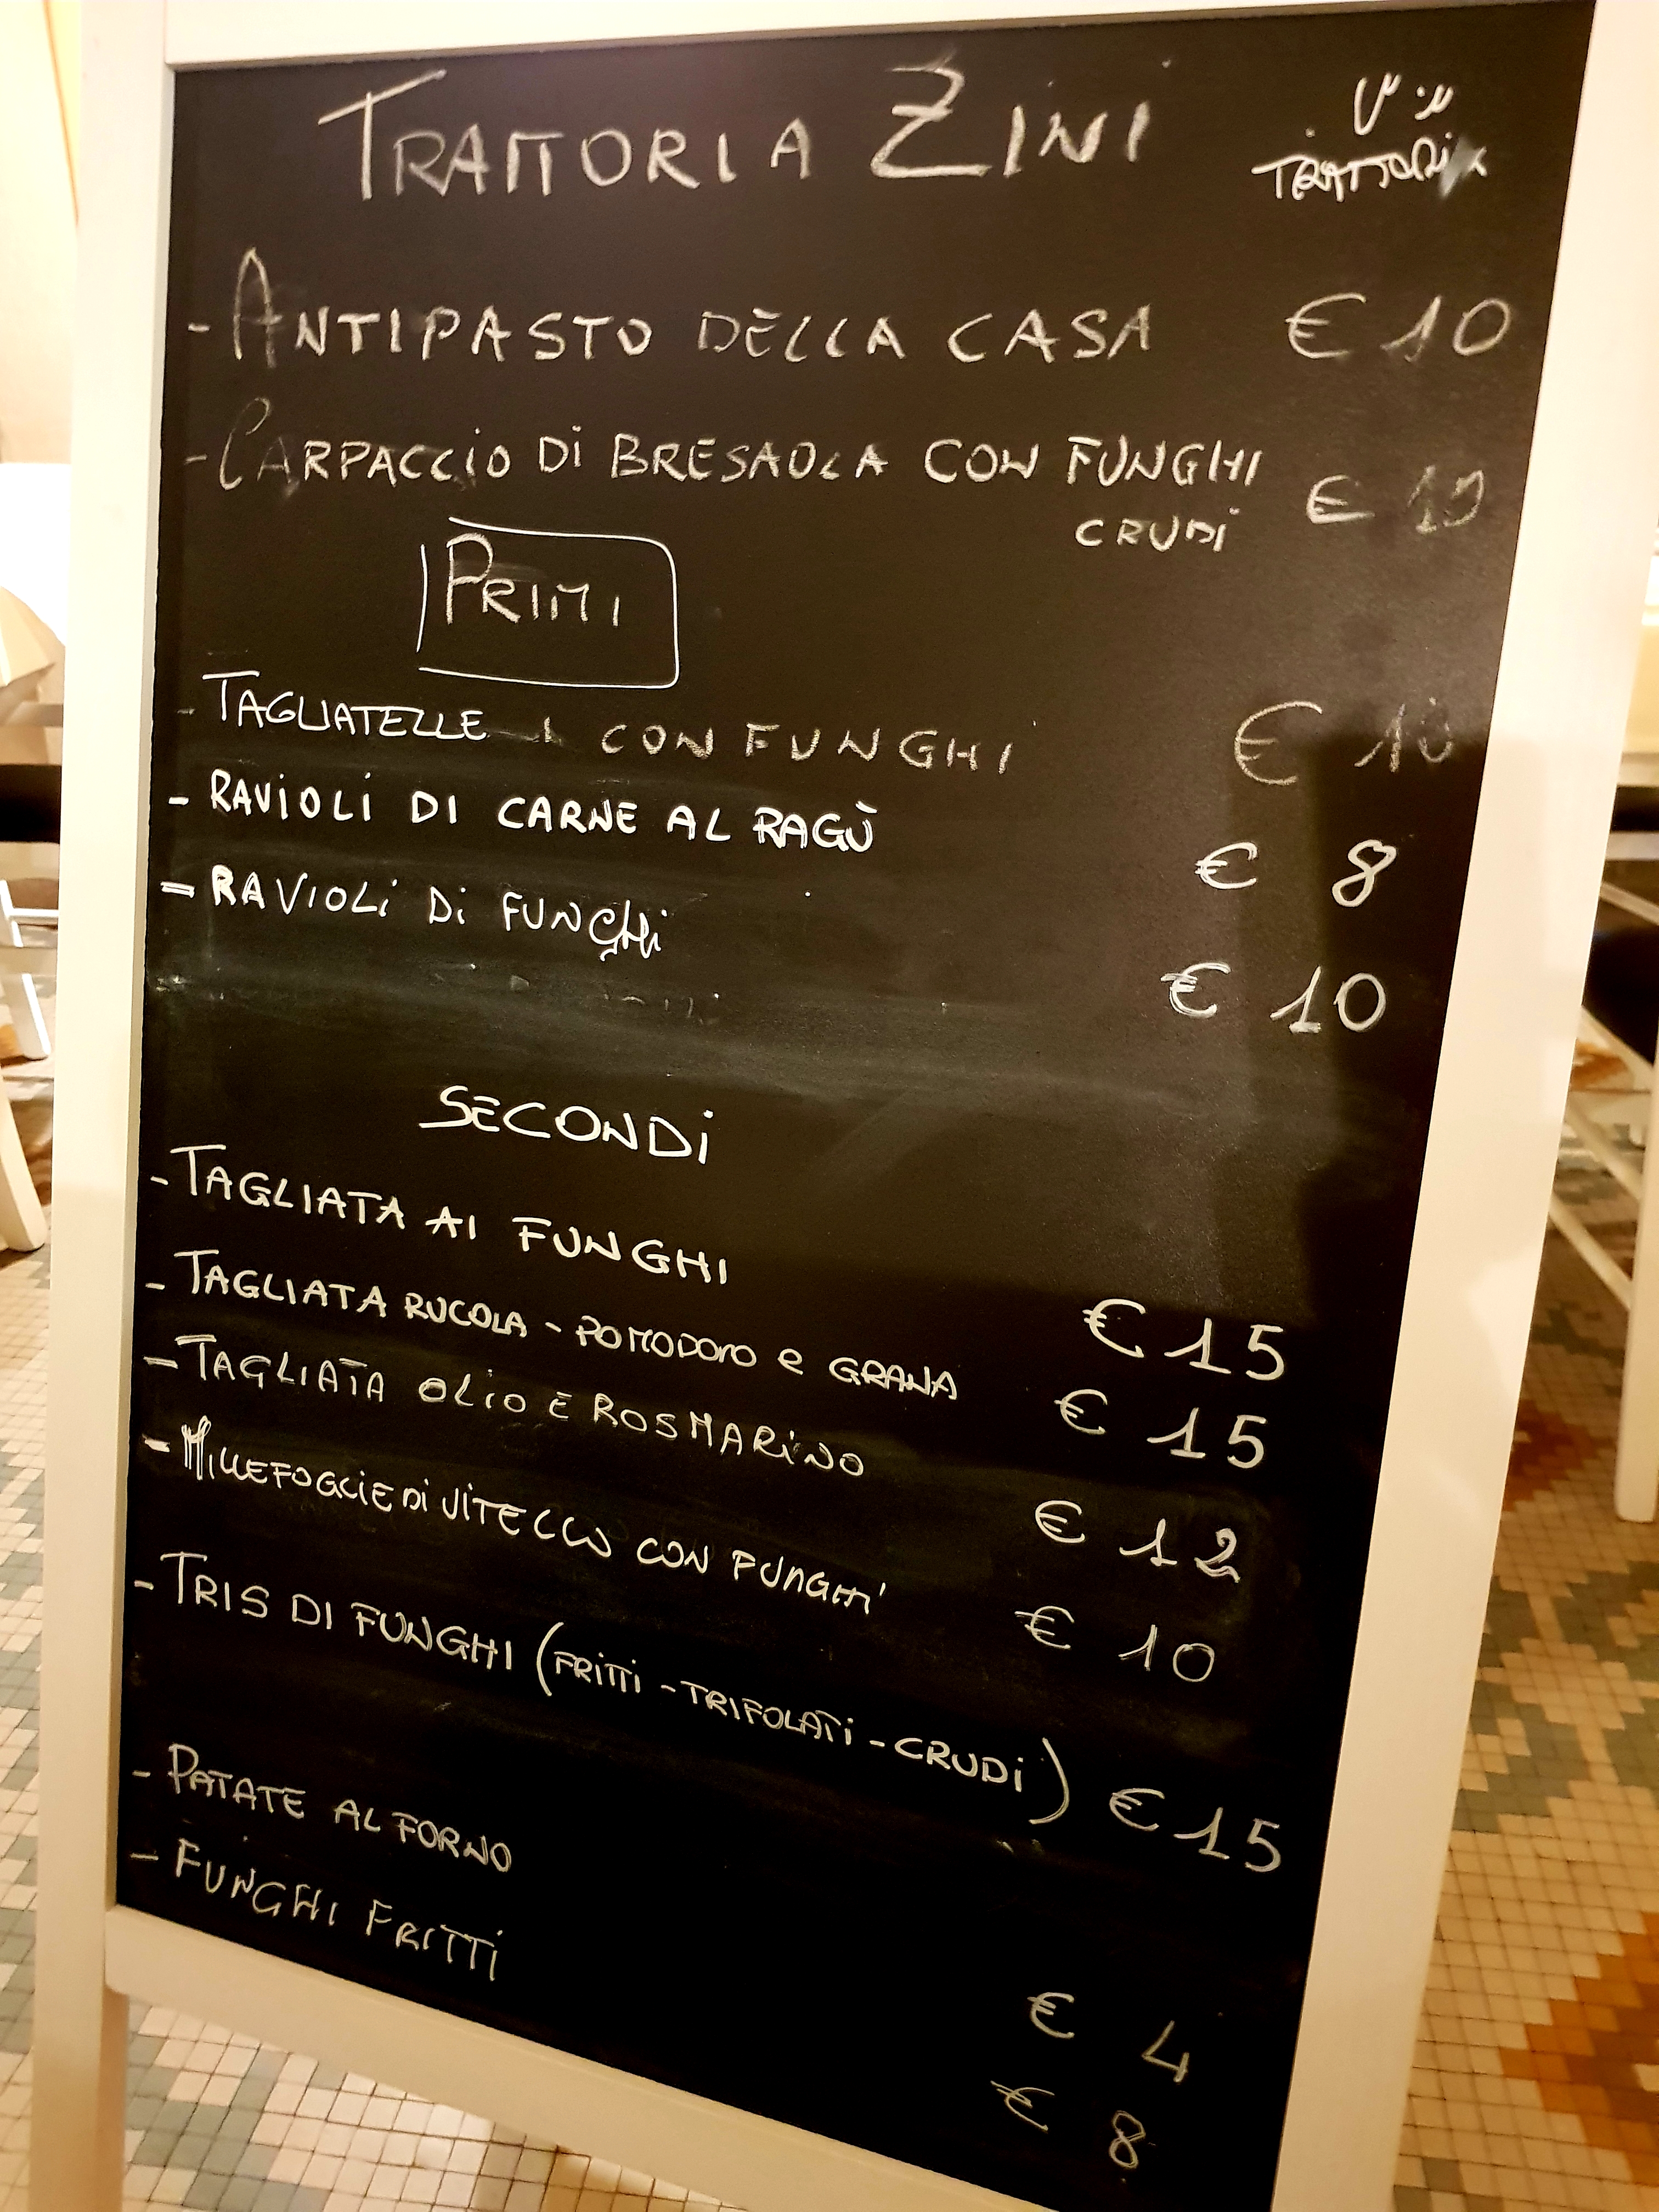 TRATTORIA ZINI
TRATTORIA
- ANTIPASTO DELLA CASA € 10
- CARPACCIO DI BRESAOLA CON FUNGHI
CRUDI €
PRIMI
- TAGLIATELLE CON FUNGHI € 10
- RAVIOLI DI CARNE AL RAGÙ € 8
- RAVIOLI DI FUNGHI € 10
SECONDI
- TAGLIATA AI FUNGHI € 15
- TAGLIATA RUCOLA - POMODORO e GRANA € 15
- TAGLIATA OLIO E ROSMARINO € 12
- MILLEFOGLIE DI VITELLO CON FUNGHI € 10
- TRIS DI FUNGHI (FRITTI - TRIFOLATI - CRUDI) € 15
- PATATE AL FORNO € 4
- FUNGHI FRITTI € 8